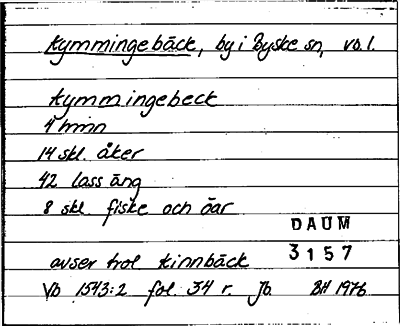 Kymmingebäck, by i Byske sn, vb.l.
Kymmingebeck
4 hmn
14 skl. åker
42 lass äng
8 skl. fiske och öar
DAUM
3157
avser trol Kinnbäck
Vb 1543:2 fol. 34 r. Jb. BH 1976